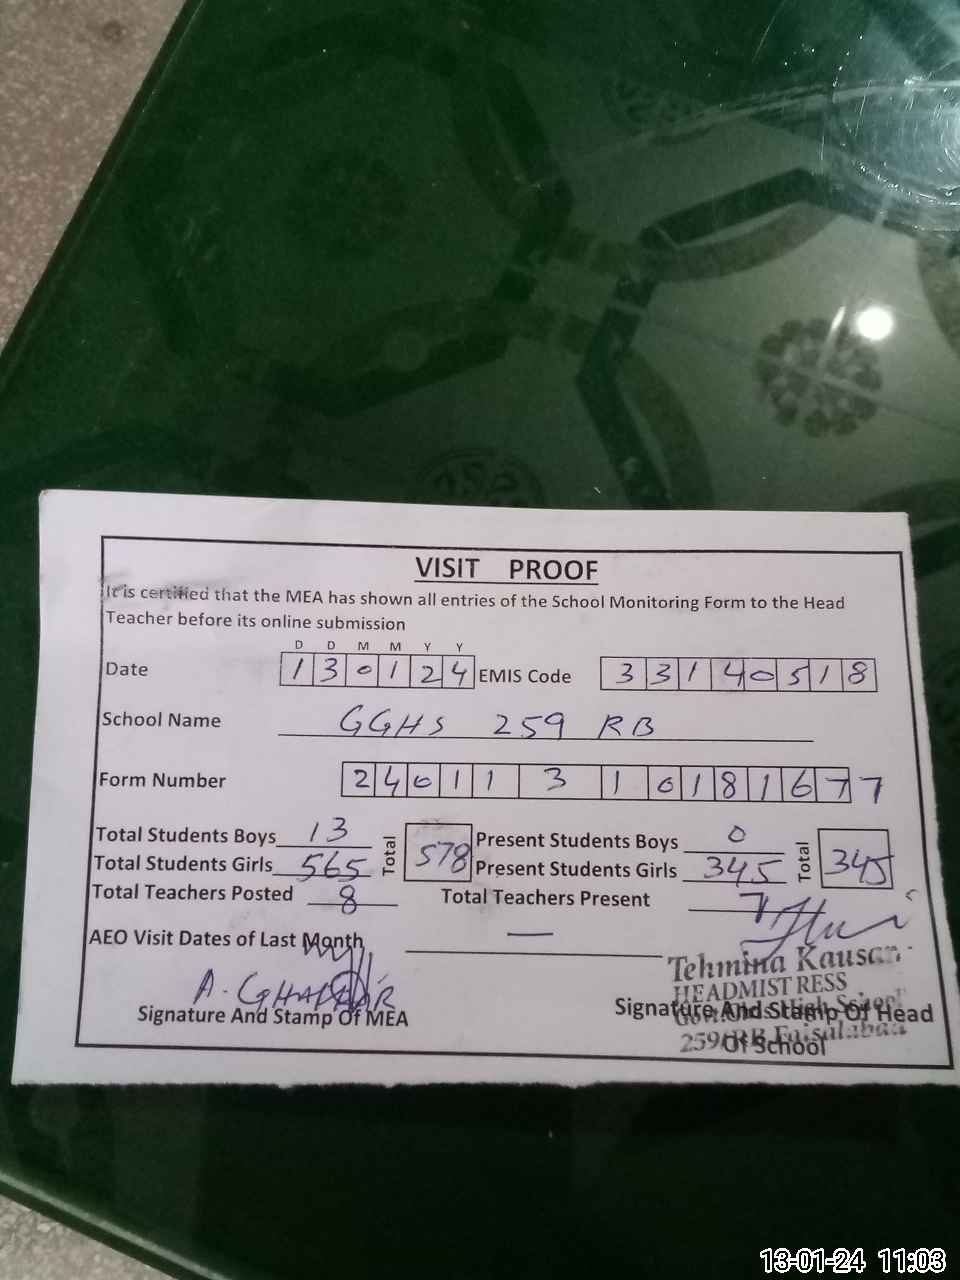 VISIT PROOF
It is certified that the MEA has shown all entries of the School Monitoring Form to the Head
Teacher before its online submission
D D M M Y Y
Date 1 3 0 1 2 4 EMIS Code 3 3 1 4 0 5 1 8
School Name GGHS 259 RB
Form Number 2 4 0 1 1 3 1 0 1 8 1 6 7 7
Total Students Boys 13 Total 578 Present Students Boys 0 Total 345
Total Students Girls 565 Present Students Girls 345
Total Teachers Posted 8 Total Teachers Present 7
AEO Visit Dates of Last Month —
A. GHAFOOR
Tehmina Kausar
HEADMISTRESS
Signature And Stamp Of MEA Signature And Stamp Of Head
Of School
Govt Girls High School
259/RB Faisalabad
13-01-24 11:03